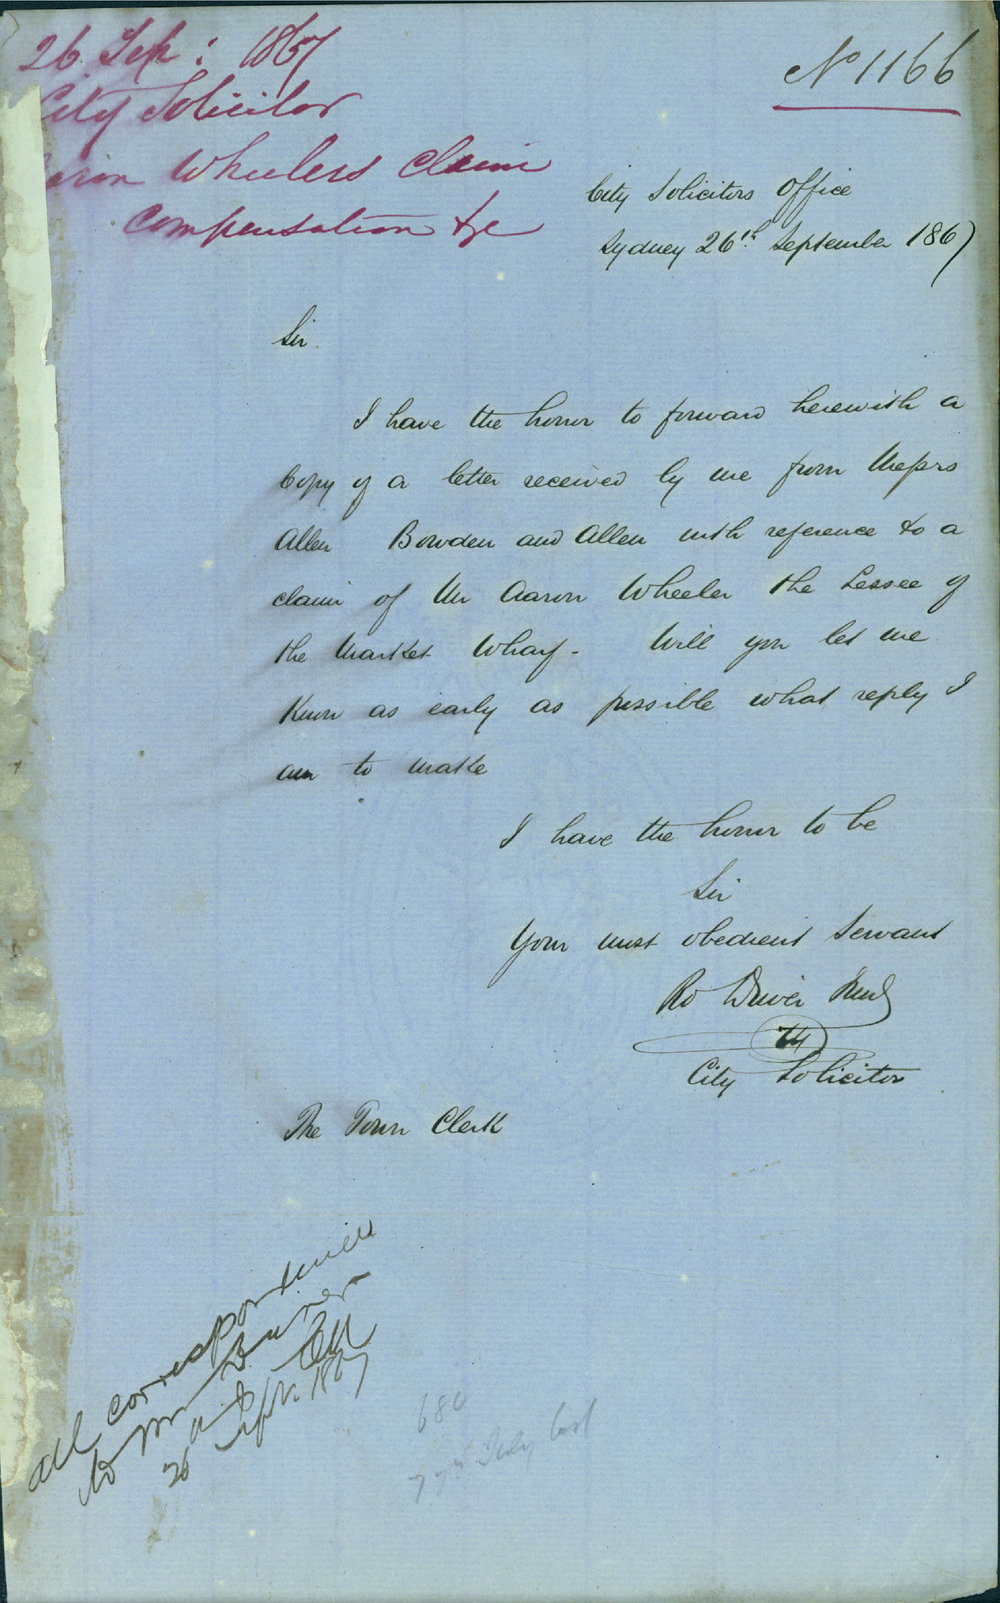 26 Sep: 1867
City Solicitor
aron Wheelers claim
Compensation &c
No 1166
City Solicitors Office
Sydney 26th September 1867
Sir.
I have the honor to forward herewith a
Copy of a letter received by me from Messrs
Allen Bowden and Allen with reference to a
claim of Mr Aaron Wheeler the Lessee of
the Market Wharf - Will you let me
know as early as possible what reply I
am to make
I have the honor to be
Sir
Your most obedient Servant
Rd Driver Junr
City Solicitor
The Town Clerk
all correspondence
to Mr Driver
26 Sept. 1867
680
July last